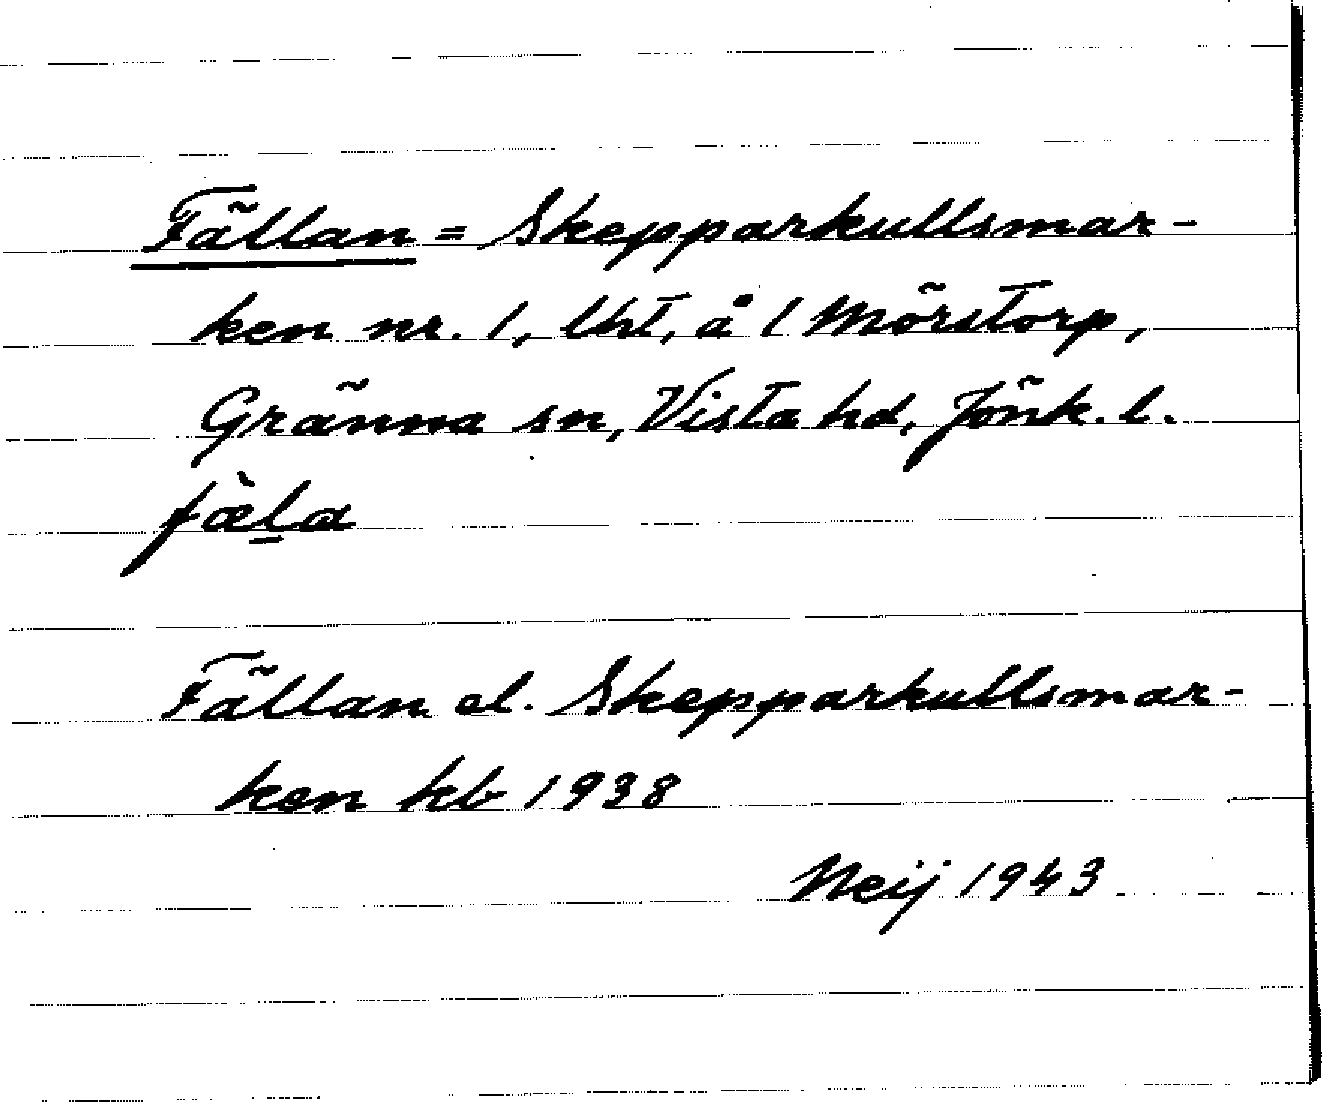 Fällan = Skepparkullsmar-
ken nr. 1, lht, å 1 Mörstorp,
Gränna sn, Vista hd, Jönk. l.
fæ̀l̲a
Fällan el. Skepparkullsmar-
ken kb 1938
Neij 1943